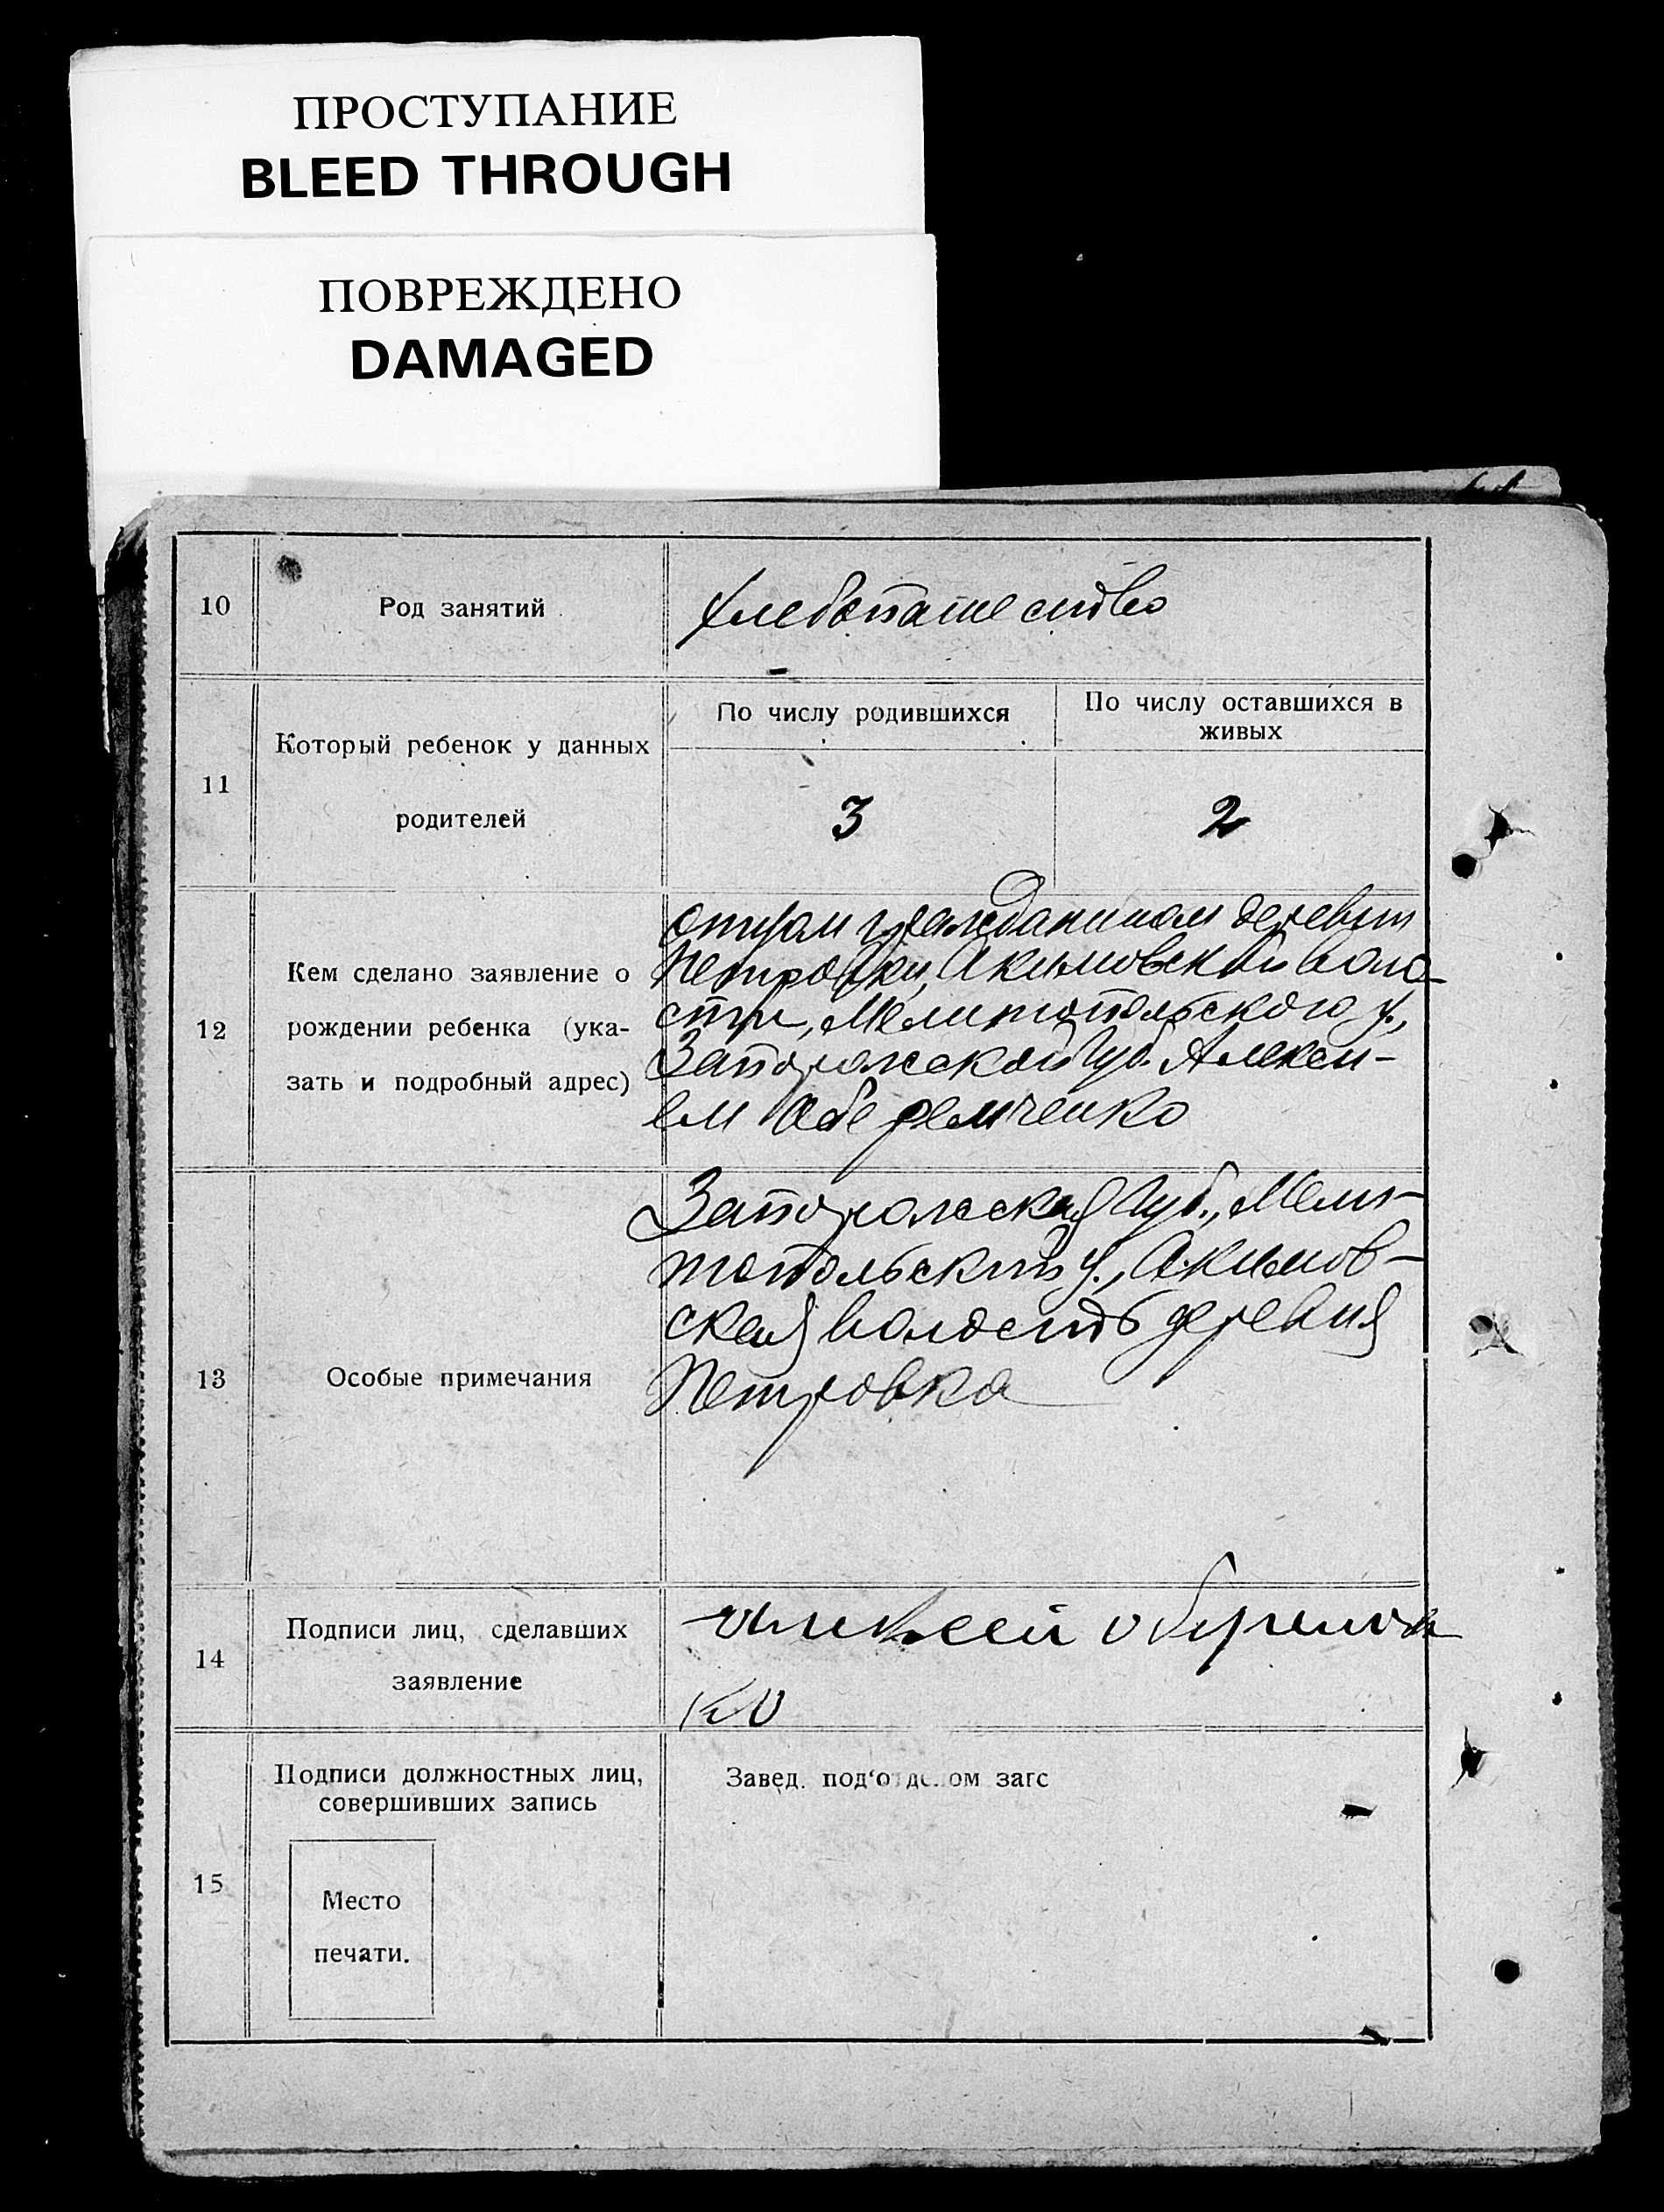 ПРОСТУПАНИЕ
BLEED THROUGH
ПОВРЕЖДЕНО
DAMAGED
10 Род занятий хлебопашество
11 Который ребенок у данных родителей
По числу родившихся
По числу оставшихся в
живых
3 2
12 Кем сделано заявление о
рождении ребенка (ука-
зать и подробный адрес)
отцом гражданином деревни
Петровки, Акимовской воло-
сти, Мелитопольского у.,
Запорожской Губ. Алексе-
ем Оберемченко
13 Особые примечания
Запорожская Губ., Мели-
топольский у., Акимов-
ская волость деревня
Петровка
14 Подписи лиц, сделавших
заявление
Алексей Оберемчен
ко
15 Подписи должностных лиц,
совершивших запись
Место
печати.
Завед. под‘отделом загс